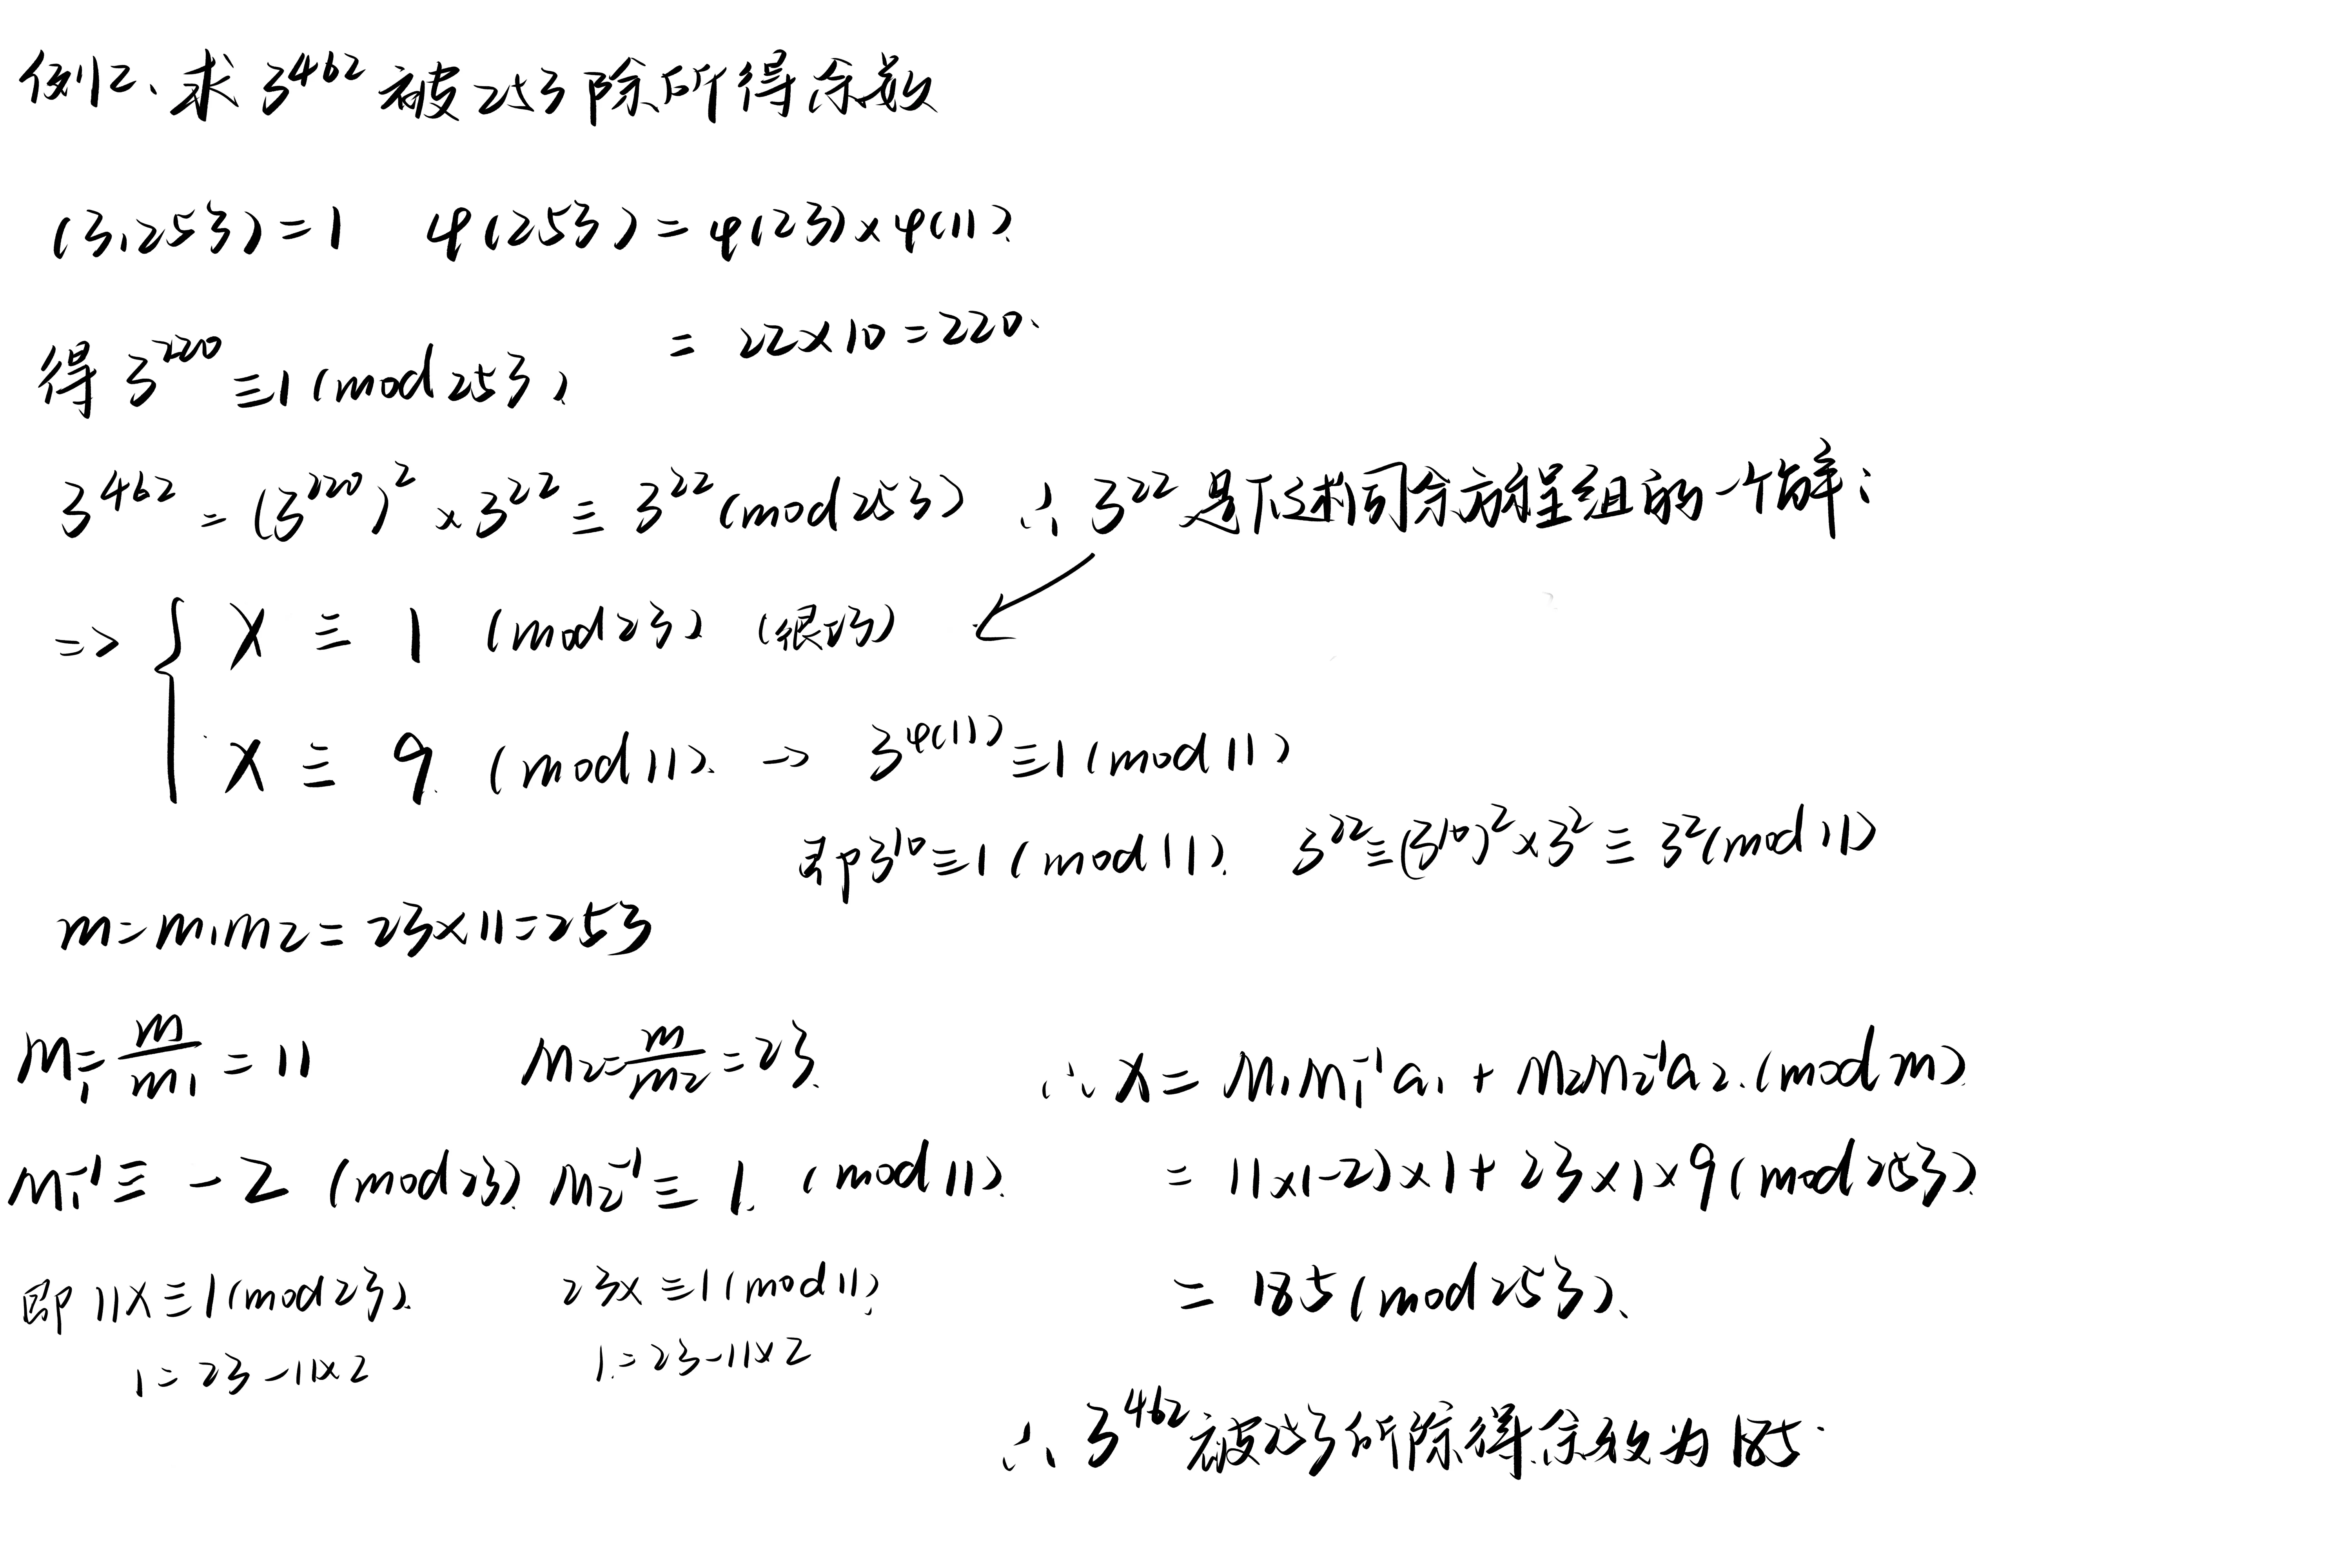 例2、求 3^462 被253除所得余数
(3,253)=1 φ(253)=φ(23)×φ(11)
=22×10=220.
得 3^220≡1(mod 253)
3^462=(3^220)^2×3^22≡3^22(mod 253) ∴3^22是下述同余方程组的一个解：
=>{ X≡1 (mod 23) (费马)
X≡9 (mod 11). → 3^φ(11)≡1(mod 11)
即3^10≡1(mod 11). 3^22≡(3^10)^2×3^2≡3^2(mod 11)
m=m₁m₂=23×11=253
M₁=m/m₁=11 M₂=m/m₂=23. ∴X=M₁M₁^-1a₁+M₂M₂^-1a₂.(mod m).
M₁^-1≡-2 (mod 23). M₂^-1≡1. (mod 11). =11×(-2)×1+23×1×9(mod 253).
即 11X≡1(mod 23). 23x≡1(mod 11). =185(mod 253).
1=23-11×2 1=23-11×2
∴3^462被253所除得余数为185.